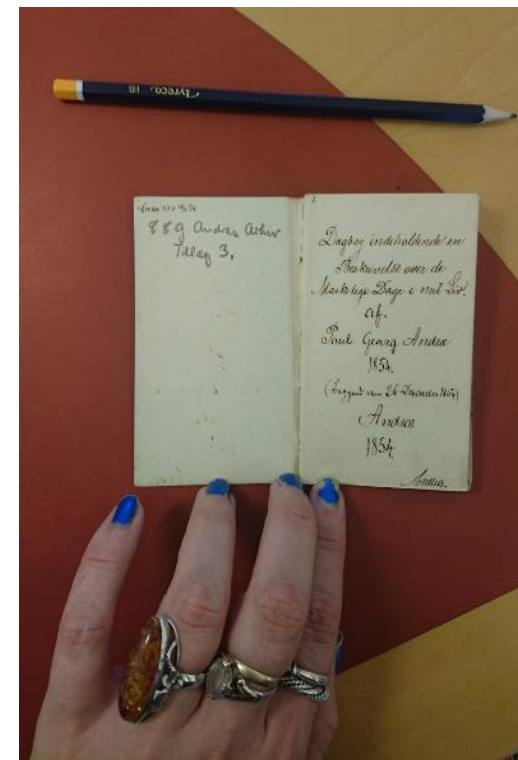 Lyreco HB
889 Andræ Arkiv
Tillæg 3.
Dagbog indeholdende en
Beskrivelse over de
Mærkelige Dage i mit Liv.
af.
Poul Georg Andræ
1854.
(Begyndt den 26 December 1854)
Andræ
1854.
Andræ.